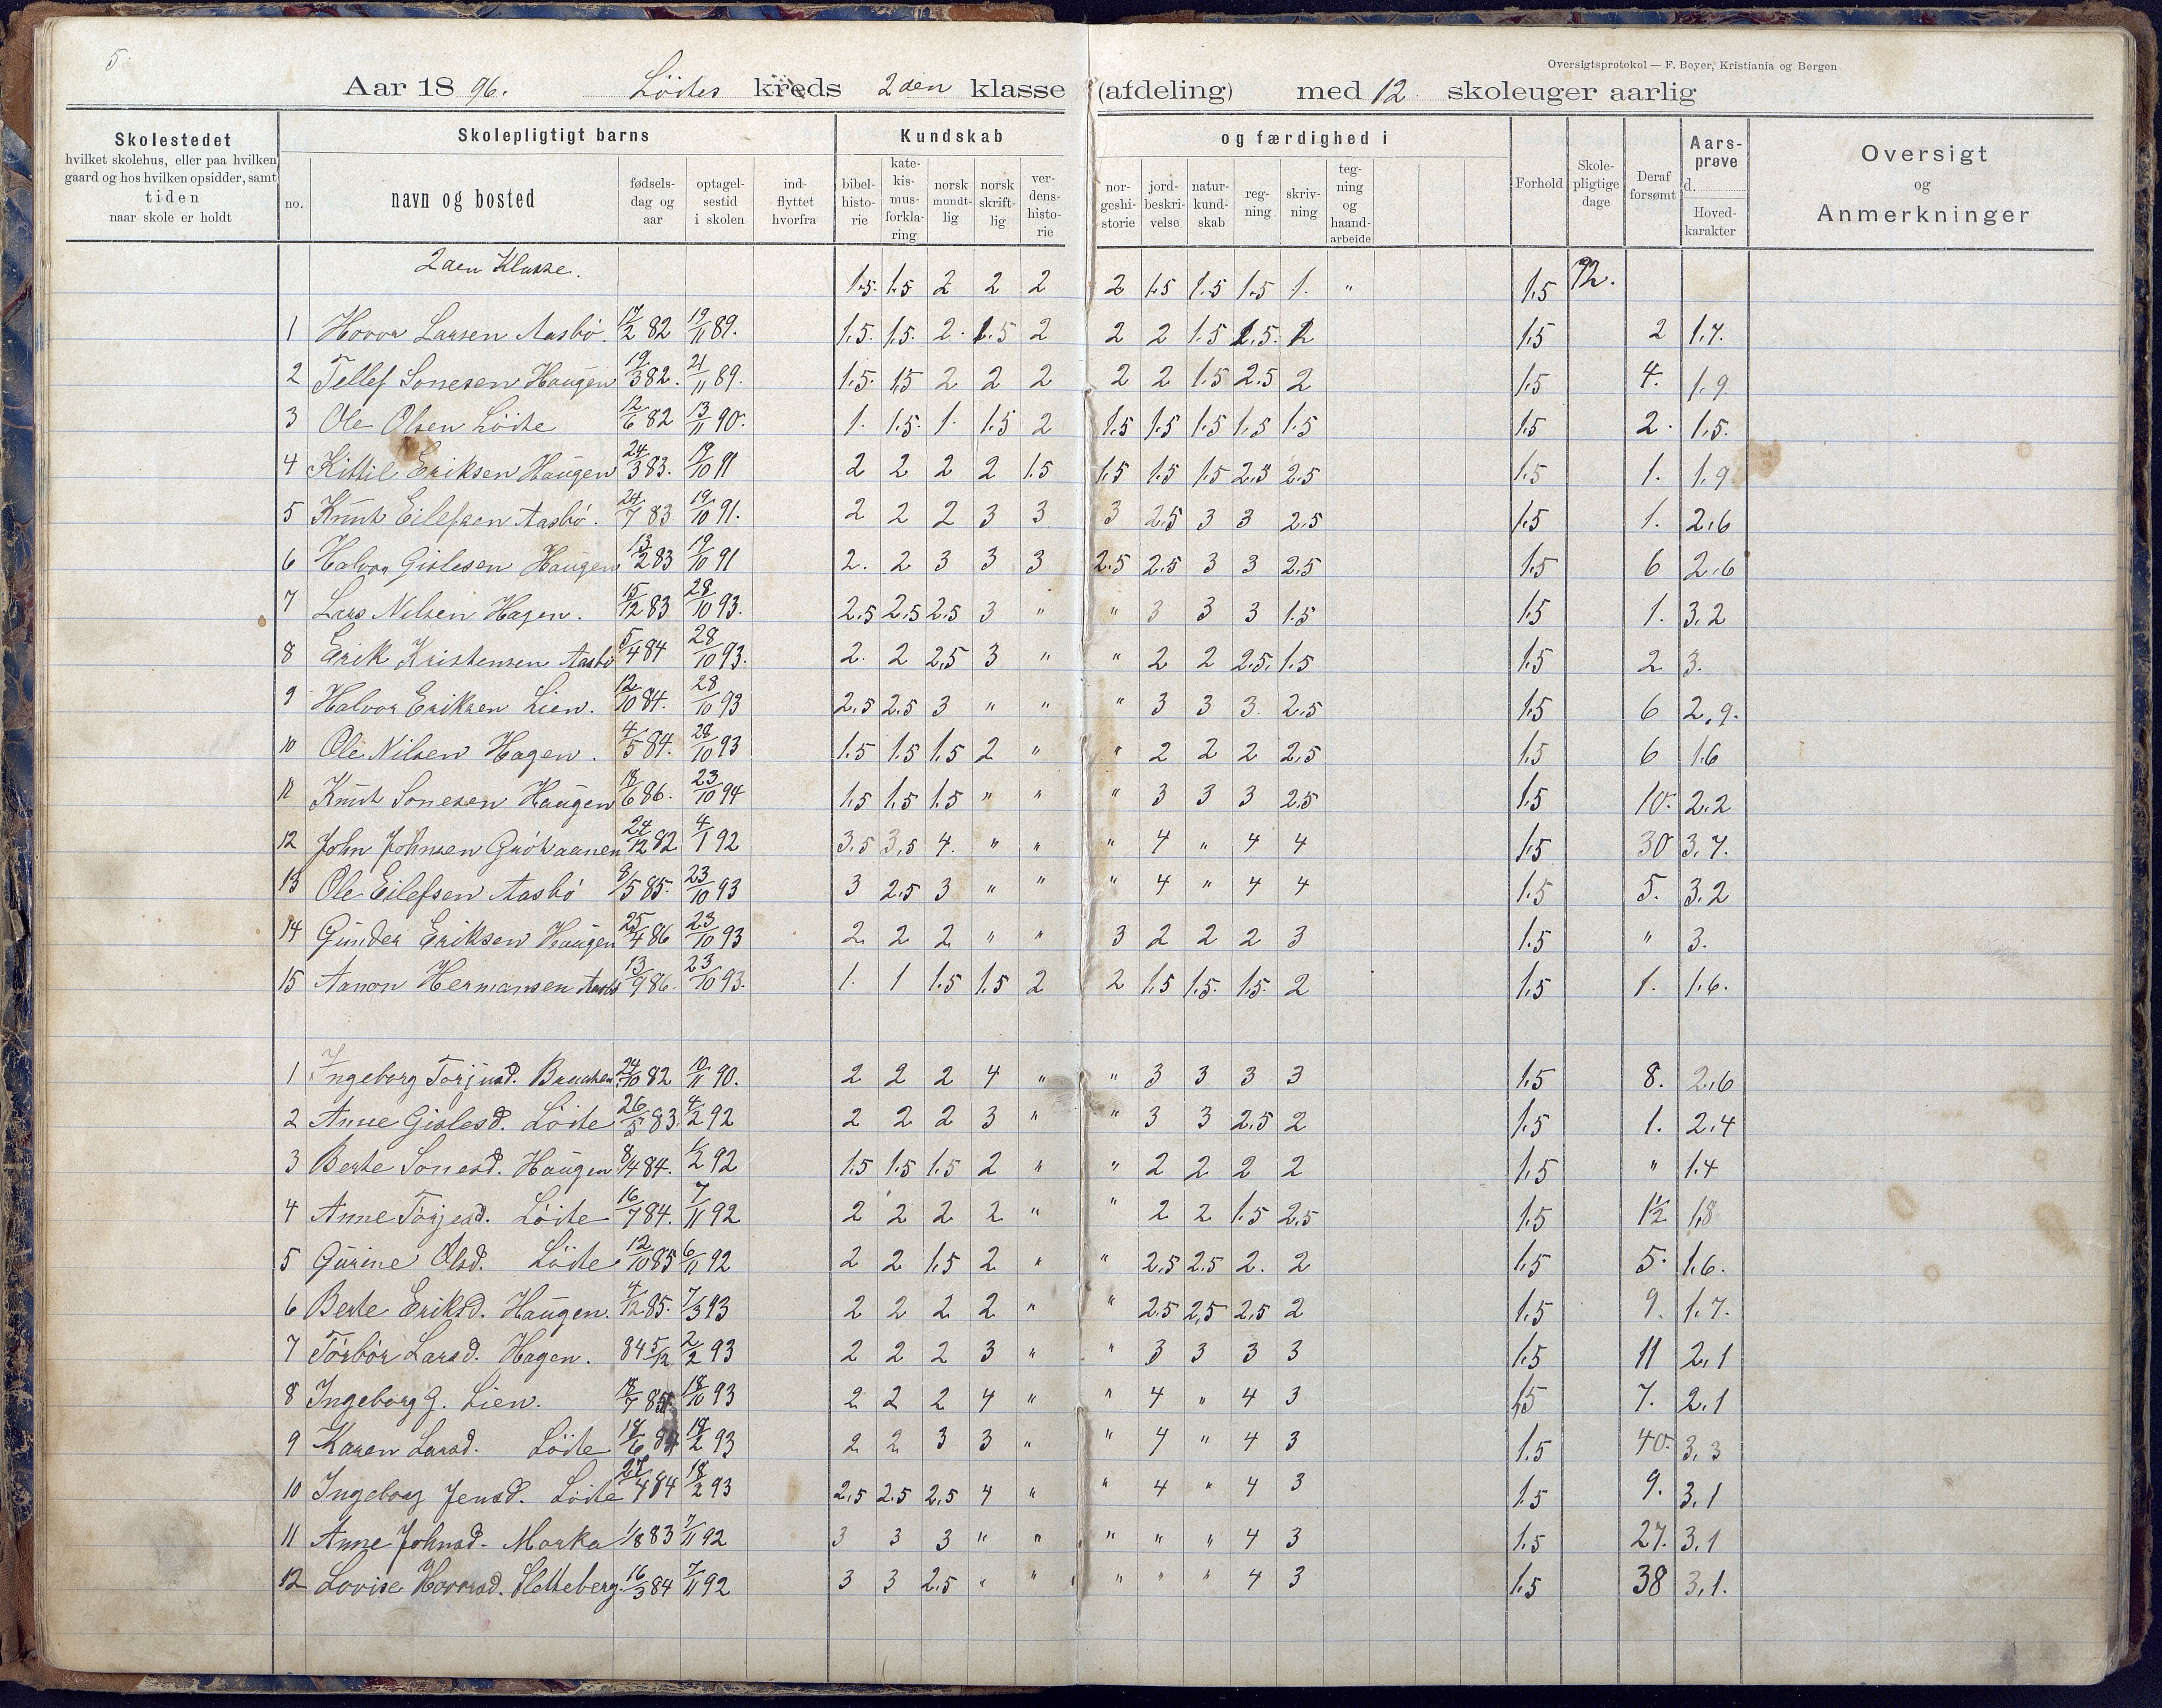 5.
Oversigtsprotokol — F. Beyer, Kristiania og Bergen
Aar 1896. Löites kreds 2den klasse (afdeling) med 12 skoleuger aarlig
Skolestedet hvilket skolehus, eller paa hvilken gaard og hos hvilken opsidder, samt tiden naar skole er holdt
Skolepligtigt barns
no. navn og bosted fødsels-dag og aar optagel-sestid i skolen ind-flyttet hvorfra
Kundskab og færdighed i
bibel-histo-rie kate-kis-mus-forkla-ring norsk mundt-lig norsk skrift-lig ver-dens-histo-rie nor-geshi-storie jord-beskri-velse natur-kund-skab reg-ning skriv-ning teg-ning og haand-arbeide
Forhold Skole-pligtige dage Deraf forsømt Aars-prøve d. Hoved-karakter
Oversigt og Anmerkninger
2den Klasse. 1.5. 1.5 2 2 2 2 1.5 1.5 1.5 1. " 1.5 72.
1 Hovor Larsen Aasbö. 17/2 82 19/11 89. 1.5. 1.5. 2. 1.5 2 2 2 1.5 2.5. 2 1.5 2 1.7.
2 Tellef Sonesen Haugen 19/3 82. 21/11 89. 1.5. 1.5 2 2 2 2 2 1.5 2.5 2 1.5 4. 1.9
3 Ole Olsen Löite 12/6 82 13/11 90. 1. 1.5. 1. 1.5 2 1.5 1.5 1.5 1.5 1.5 1.5 2. 1.5.
4 Kittil Eriksen Haugen 24/3 83. 19/10 91 2 2 2 2 1.5 1.5 1.5 1.5 2.5 2.5 1.5 1. 1.9
5 Knut Eilefsen Aasbö. 24/7 83 19/10 91. 2 2 2 3 3 3 2.5 3 3 2.5 1.5 1. 2.6
6 Halvor Gislesen Haugen 13/2 83 19/10 91 2. 2 3 3 3 2.5 2.5 3 3 2.5 1.5 6 2.6
7 Lars Nilsen Hagen. 15/12 83 28/10 93. 2.5 2.5 2.5 3 " " 3 3 3 1.5 1.5 1. 3.2
8 Erik Kristensen Aasbö 5/4 84 28/10 93. 2. 2 2.5 3 " " 2 2 2.5. 1.5 1.5 2 3.
9 Halvor Eriksen Lien. 12/10 84. 28/10 93 2.5 2.5 3 " " " 3 3 3. 2.5 1.5 6 2.9.
10 Ole Nilsen Hagen. 4/5 84. 28/10 93 1.5 1.5 1.5 2 " " 2 2 2 2.5 1.5 6 1.6
11 Knut Sonesen Haugen 18/6 86. 23/10 94 1.5 1.5 1.5 " " " 3 3 3 2.5 1.5 10. 2.2
12 John Johnsen 24/12 82 4/1 92 3.5 3.5 4. " " " 4 " 4 4 1.5 30 3.7.
13 Ole Eilefsen Aasbö 8/5 85. 23/10 93 3 2.5 3 " " " 4 " 4 4 1.5 5. 3.2
14 Gunder Eriksen Haugen 25/4 86 23/10 93 2 2 2 " " 3 2 2 2 3 1.5 " 3.
15 Aanon Hermansen Aasb 13/9 86. 23/10 93. 1. 1 1.5 1.5 2 2 1.5 1.5. 1.5. 2 1.5 1. 1.6.
1 Ingeborg Torjusd. 24/10 82 10/11 90. 2 2 2 4 " " 3 3 3 3 1.5 8. 2.6
2 Anne Gislesd. Löite 26/5 83. 4/2 92 2 2 2 3 " " 3 3 2.5 2 1.5 1. 2.4
3 Berte Sonesd. Haugen 8/4 84. 1/2 92 1.5 1.5 1.5 2 " " 2 2 2 2 1.5 " 1.4
4 Anne Torjesd. Löite 16/7 84. 7/11 92 2 2 2 2 " " 2 2 1.5 2.5 1.5 1½ 1.8
5 Gurine Olsd. Löite 12/10 85 6/11 92 2 2 1.5 2 " " 2.5 2.5 2. 2 1.5 5. 1.6.
6 Berte Eriksd. Haugen. 4/12 85. 7/3 93 2 2 2 2 " " 2.5 2.5 2.5 2 1.5 9. 1.7.
7 Torbör Larsd. Hagen. 84 5/12 2/2 93 2 2 2 3 " " 3 3 3 3 1.5 11 2.1
8 Ingeborg G. Lien. 18/7 85 18/10 93 2 2 2 4 " " 4 " 4 3 1.5 7. 2.1
9 Karen Larsd. Löite 18/6 84 18/2 93 2 2 3 3 " " 4 " 4 3 1.5 40. 3.3
10 Ingeborg Jensd. Löite 27/4 84 18/2 93 2.5 2.5 2.5 4 " " 4 " 4 3 1.5 9. 3.1
11 Anne Johnsd. Morka 1/8 83 7/11 92 3 3 3 " " " " " 4 3 1.5 27. 3.1
12 Lovise Hovorsd. Sletteberg. 16/3 84 7/11 92 3 3 2.5 " " " " " 4 3 1.5 38 3.1.